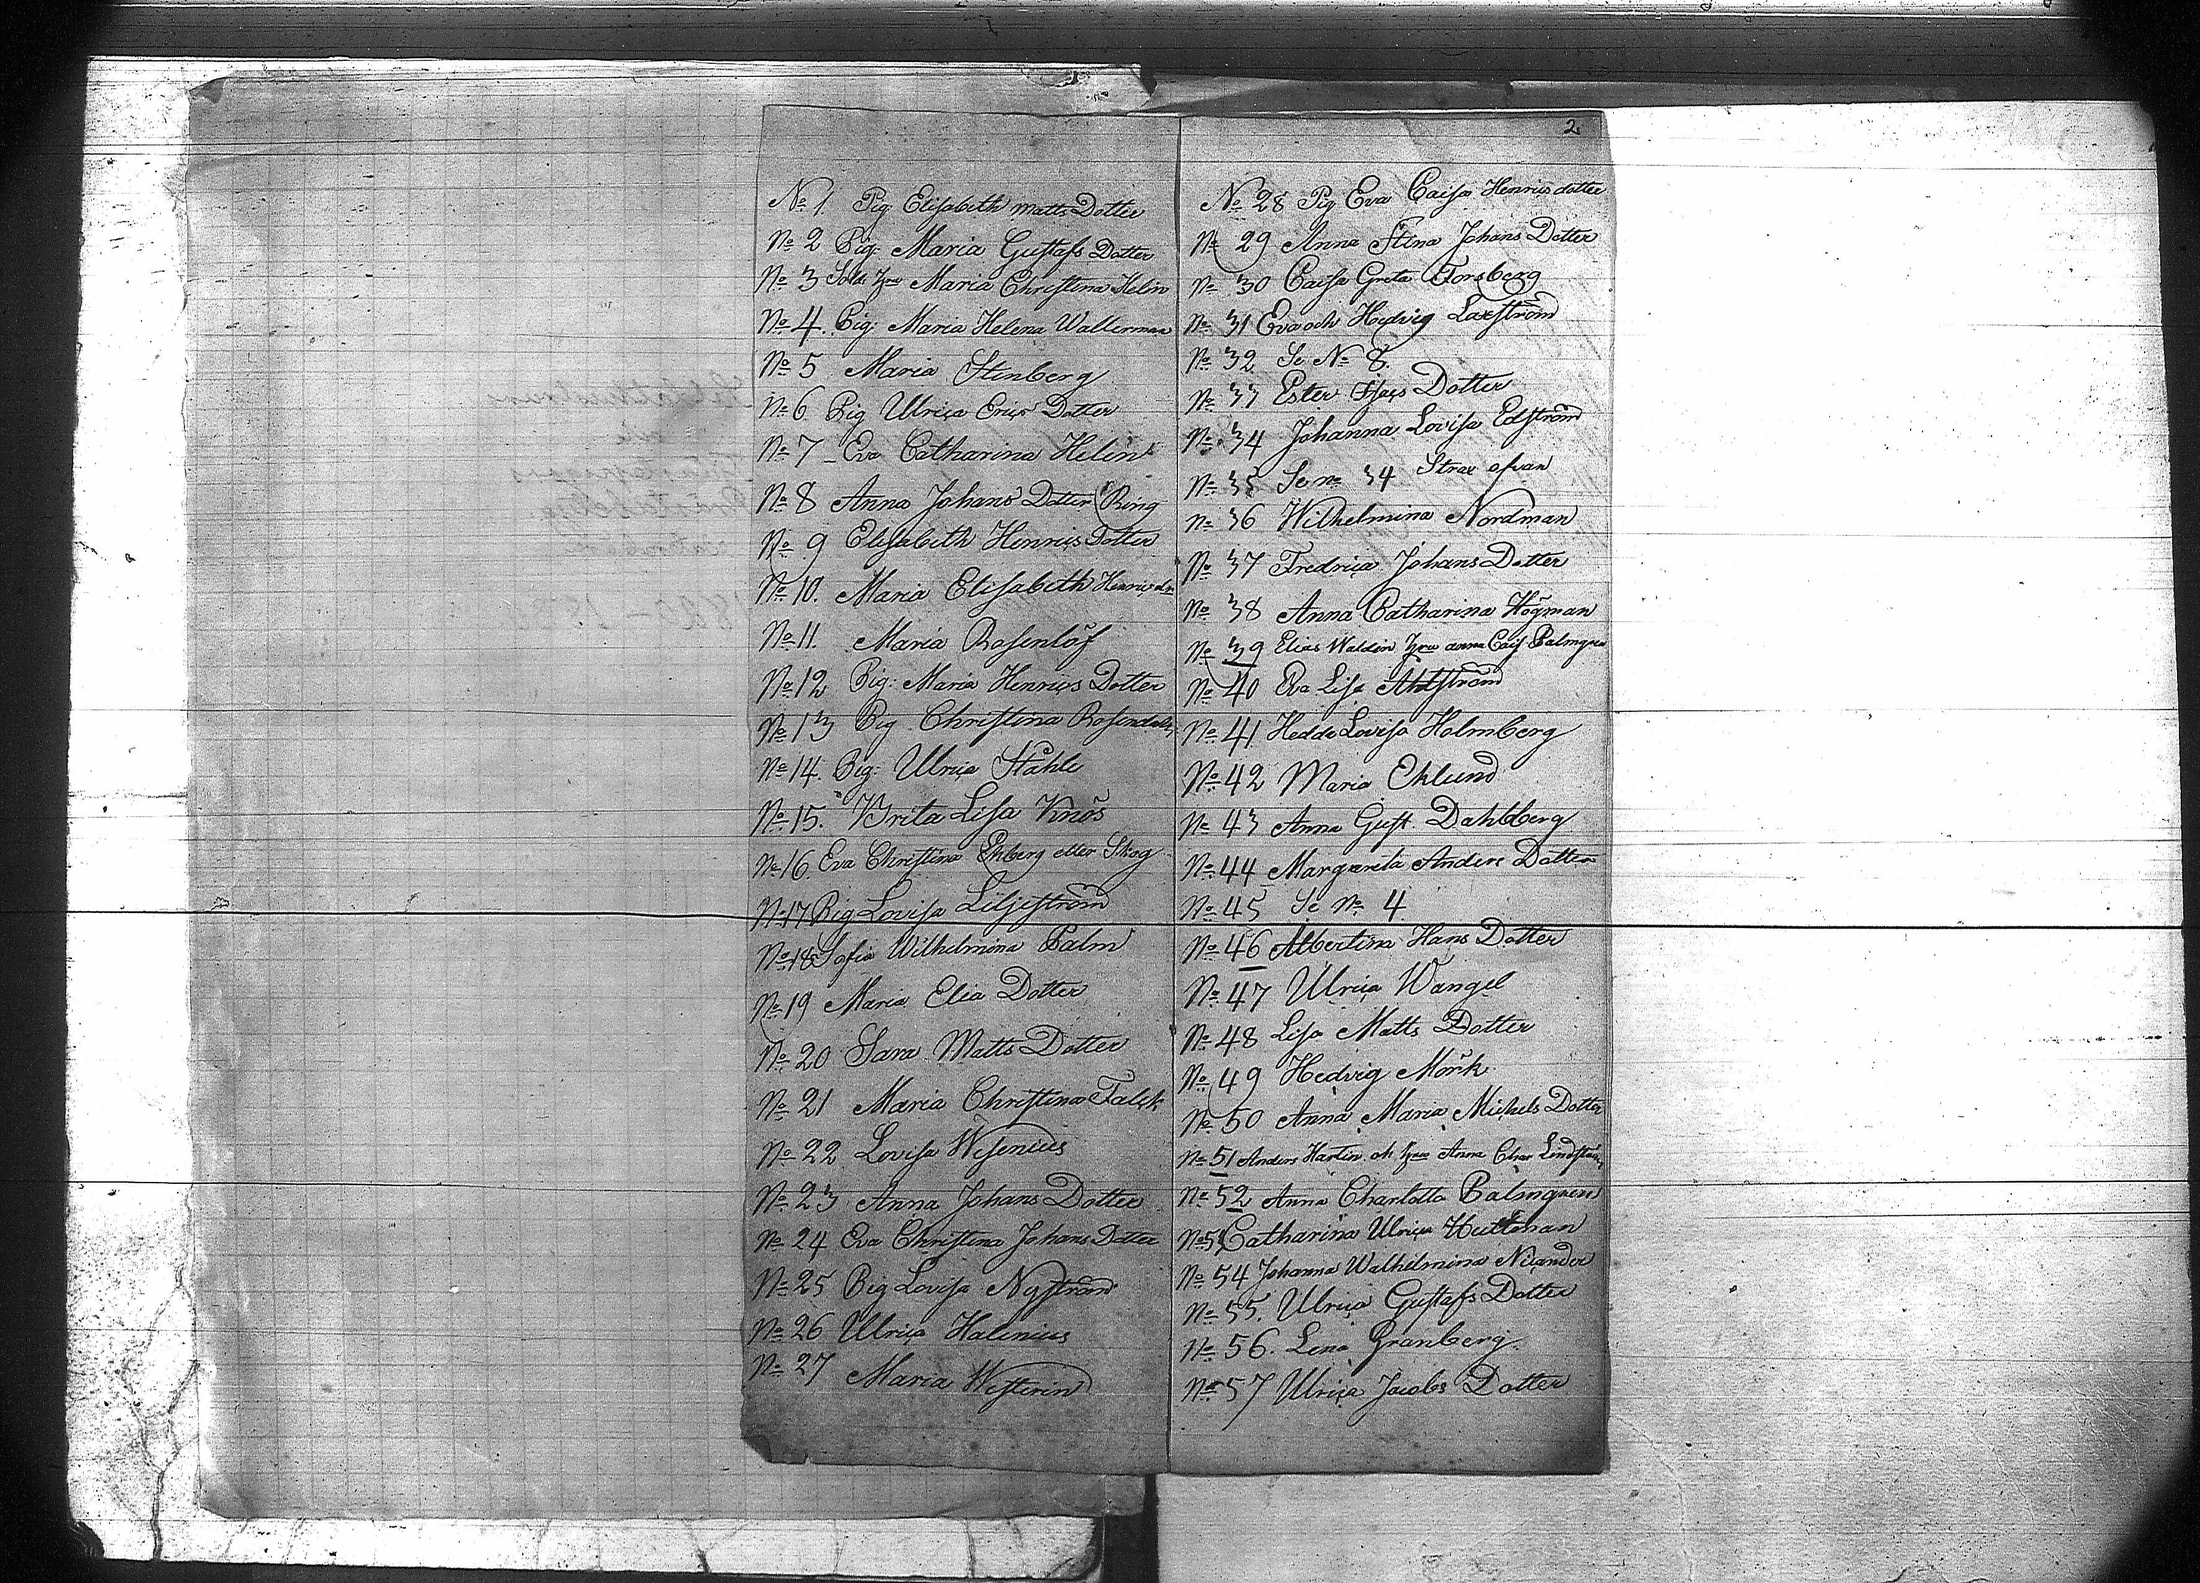 No 1. Pig Elisabeth Matts Dotter
No 2 Pig: Maria Gustafs Dotter
No 3 Sold: Hru Maria Christina Helin
No 4. Pig: Maria Helena Wallerman
No 5 Maria Stenberg
No 6 Pig Ulrica Erics Dotter
No 7 Eva Catharina Helins
No 8 Anna Johans Dotter (Ring
No 9 Elisabeth Henrics Dotter
No 10. Maria Elisabeth Henrics dr
No 11. Maria Rosenlöf
No 12 Pig: Maria Henrics Dotter
No 13 Pig Christina Rosendahl
No 14. Pig: Ulrica Ståhle
No 15. Brita Lisa Knös
No 16. Eva Christina Ekberg eller Skog
No 17 Pig Lovisa Liljeström
No 18 Sofia Wilhelmina Palm
No 19 Maria Elia Dotter
No 20 Sara Matts Dotter
No 21 Maria Christina Falck
No 22 Lovisa Wisenius
No 23 Anna Johans Dotter
No 24 Eva Christina Johans Dotter
No 25 Pig Lovisa Nyström
No 26 Ulrica Halenius
No 27 Maria Westerin
2
No 28 Pig Eva Caisa Henrics dotter
No 29 Anna Stina Johans Dotter
No 30 Caisa Greta Forsberg
No 31 Eva och Hedvig Laxström
No 32 Se No 8.
No 33 Ester Dotter
No 34 Johanna Lovisa Edström
No 35 Se no 34 Strax ofvan
No 36 Wilhelmina Nordman
No 37 Fredrica Johans Dotter
No 38 Anna Catharina Högman
No 39 Elias Waldin Hru Anna Cais Palmgren
No 40 Eva Lisa Ahlström
No 41 Hedda Lovisa Holmberg
No 42 Maria Eklund
No 43 Anna Gust. Dahlberg
No 44 Margareta Anders Dotter
No 45 Se No 4
No 46 Albertina Hans Dotter
No 47 Ulrica Wangel
No 48 Lisa Matts Dotter
No 49 Hedvig Mörk
No 50 Anna Maria Michels Dotter
No 51 Anders Hartin ok Hru Anna Char Lindström
No 52 Anna Charlotta Palmgren
No 53 Catharina Ulrica Huttman
No 54 Johanna Walhelmina Nicander
No 55. Ulrica Gustafs Dotter
No 56. Lena Granberg.
No 57 Ulrica Jacobs Dotter